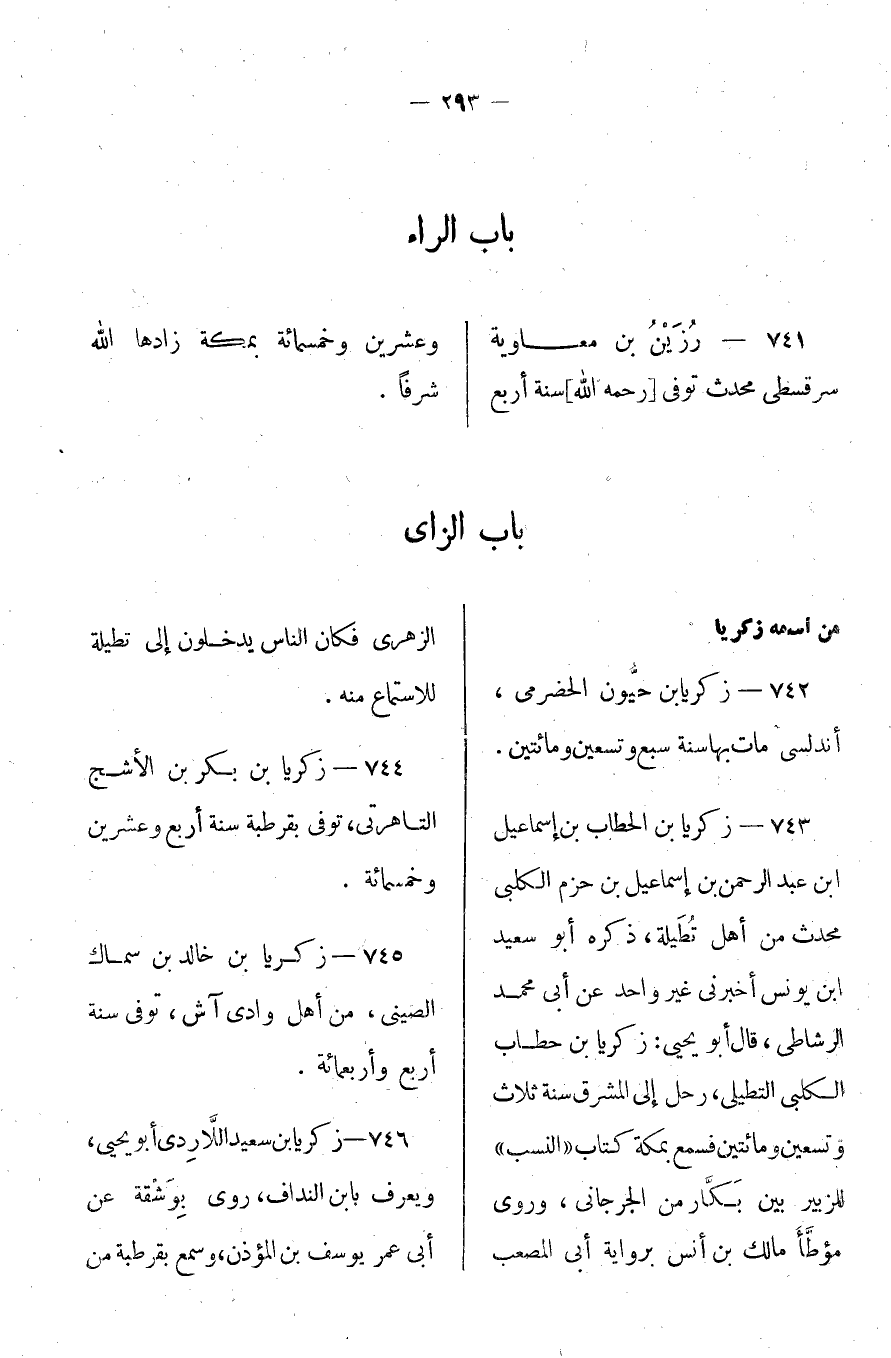 — ٢٩٣ —
باب الراء
٧٤١ — رُزَيْنُ بن معـــاوية
سرقسطى محدث توفى [رحمه الله] سنة أربع
وعشرين وخمسمائة بمكة زادها الله
شرفاً .
باب الزاى
من أسمه زكريا
٧٤٢ — زكريا بن حيُّون الحضرمى ،
أندلسى مات بها سنة سبع وتسعين ومائتين .
٧٤٣ — زكريا بن الخطاب بن إسماعيل
ابن عبد الرحمن بن إسماعيل بن حزم الكلبى
محدث من أهل تُطَيلة ، ذكره أبو سعيد
ابن يونس أخبرنى غير واحد عن أبى محمد
الرشاطى ، قال أبو يحيى : زكريا بن حطاب
الكلبى التطيلى ، رحل إلى المشرق سنة ثلاث
وتسعين ومائتين فسمع بمكة كتاب «النسب»
للزبير بين بَكَّار من الجرجانى ، وروى
مؤطَّأَ مالك بن أنس برواية أبى المصعب
الزهرى فكان الناس يدخلون إلى تطيلة
للاستماع منه .
٧٤٤ — زكريا بن بكر بن الأشج
التاهرتى ، توفى بقرطبة سنة أربع وعشرين
وخمسمائة .
٧٤٥ — زكريا بن خالد بن سماك
الصينى ، من أهل وادى آش ، توفى سنة
أربع وأربعمائة .
٧٤٦ — زكريا بن سعيد اللَّارِدى أبو يحيى ،
ويعرف بابن النداف ، روى بِوَشْقة عن
أبى عمر يوسف بن المؤذن ، وسمع بقرطبة من